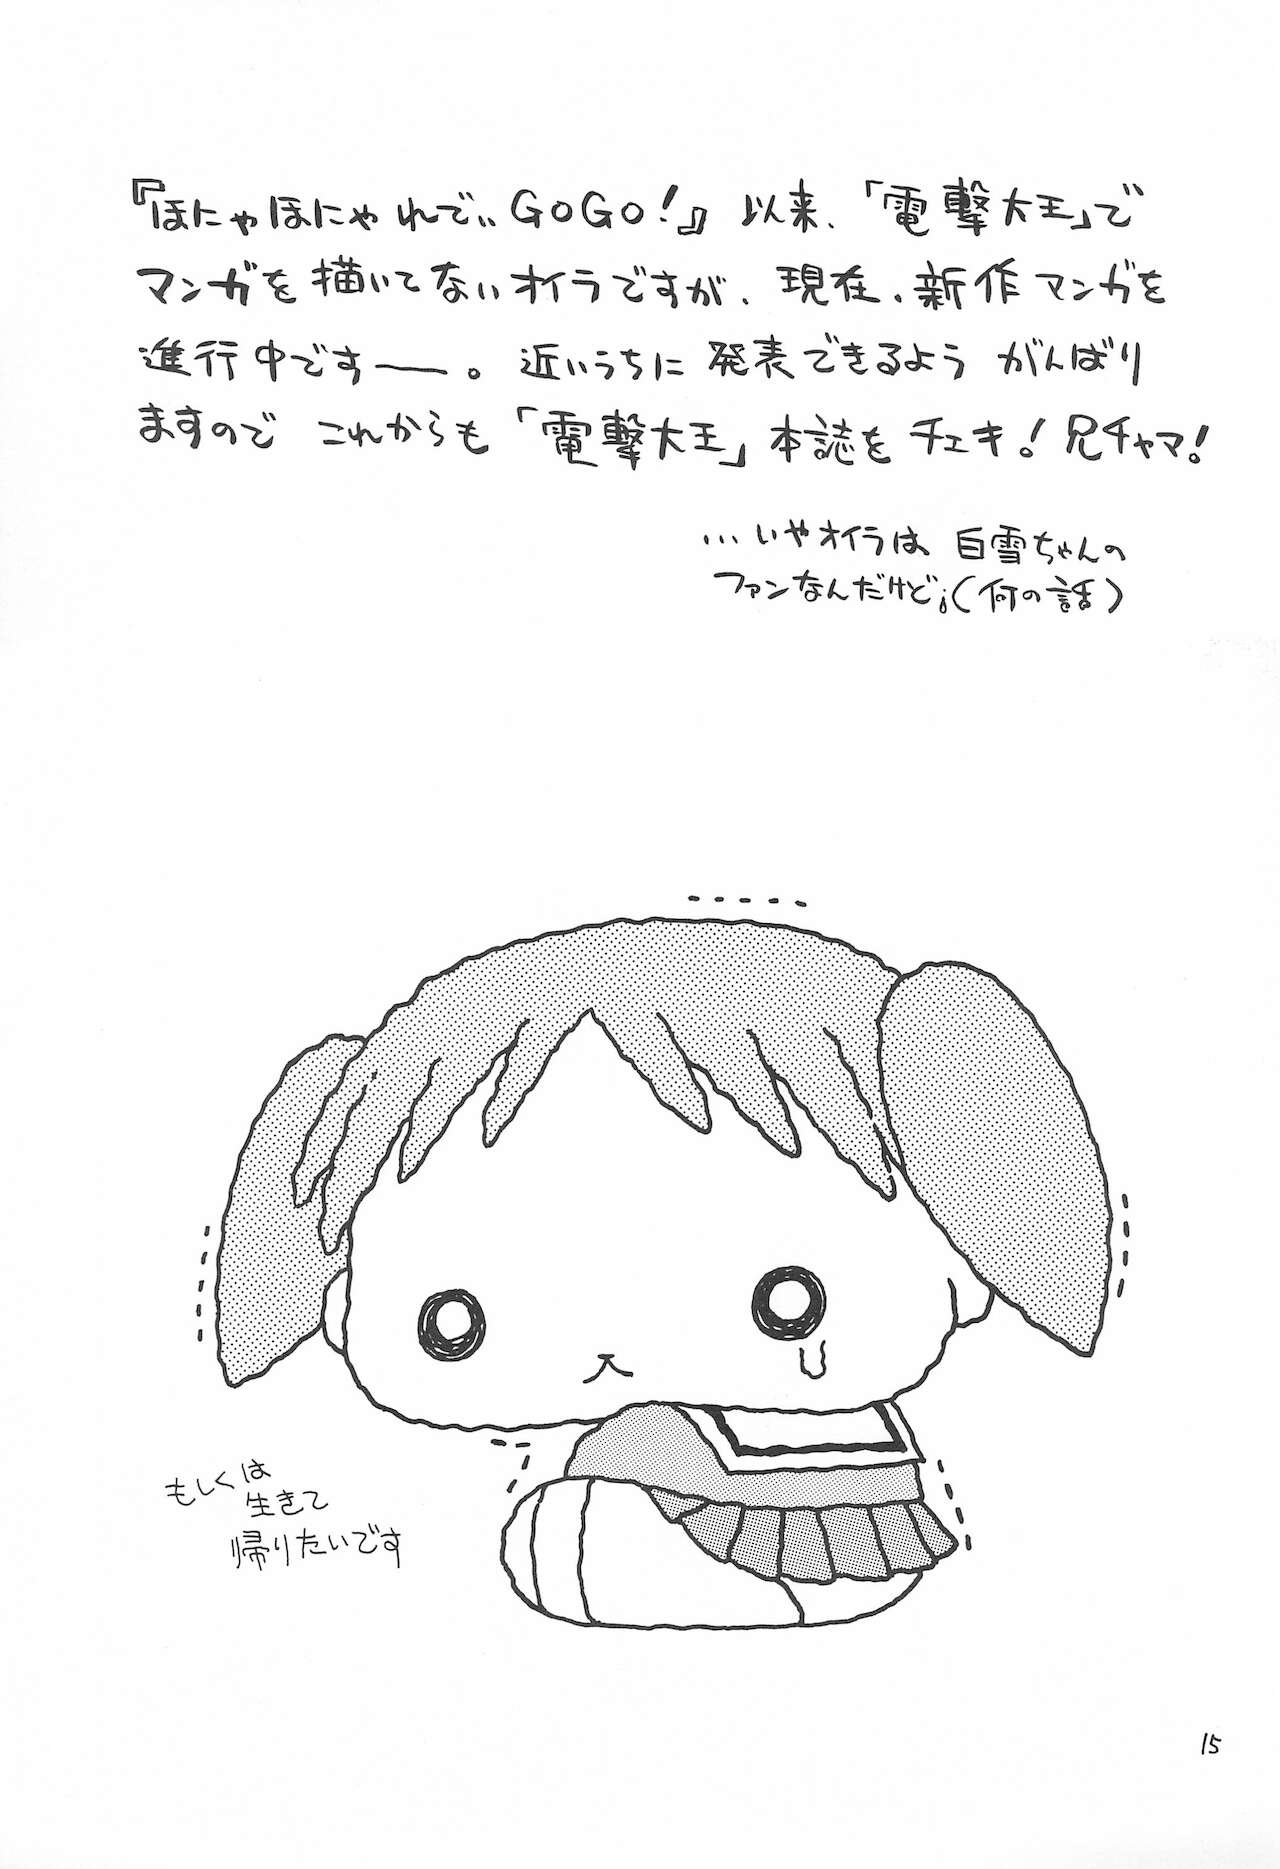 『ほにゃほにゃれでぃGoGo!』以来、「電撃大王」で
マンガを描いてないオイラですが、現在、新作マンガを
進行中ですー。近いうちに発表できるようがんばり
ますのでこれからも「電撃大王」本誌をチェキ!兄チャマ!
…いやオイラは白雪ちゃんの
ファンなんだけど;(何の話)
もしくは
生きて
帰りたいです
15